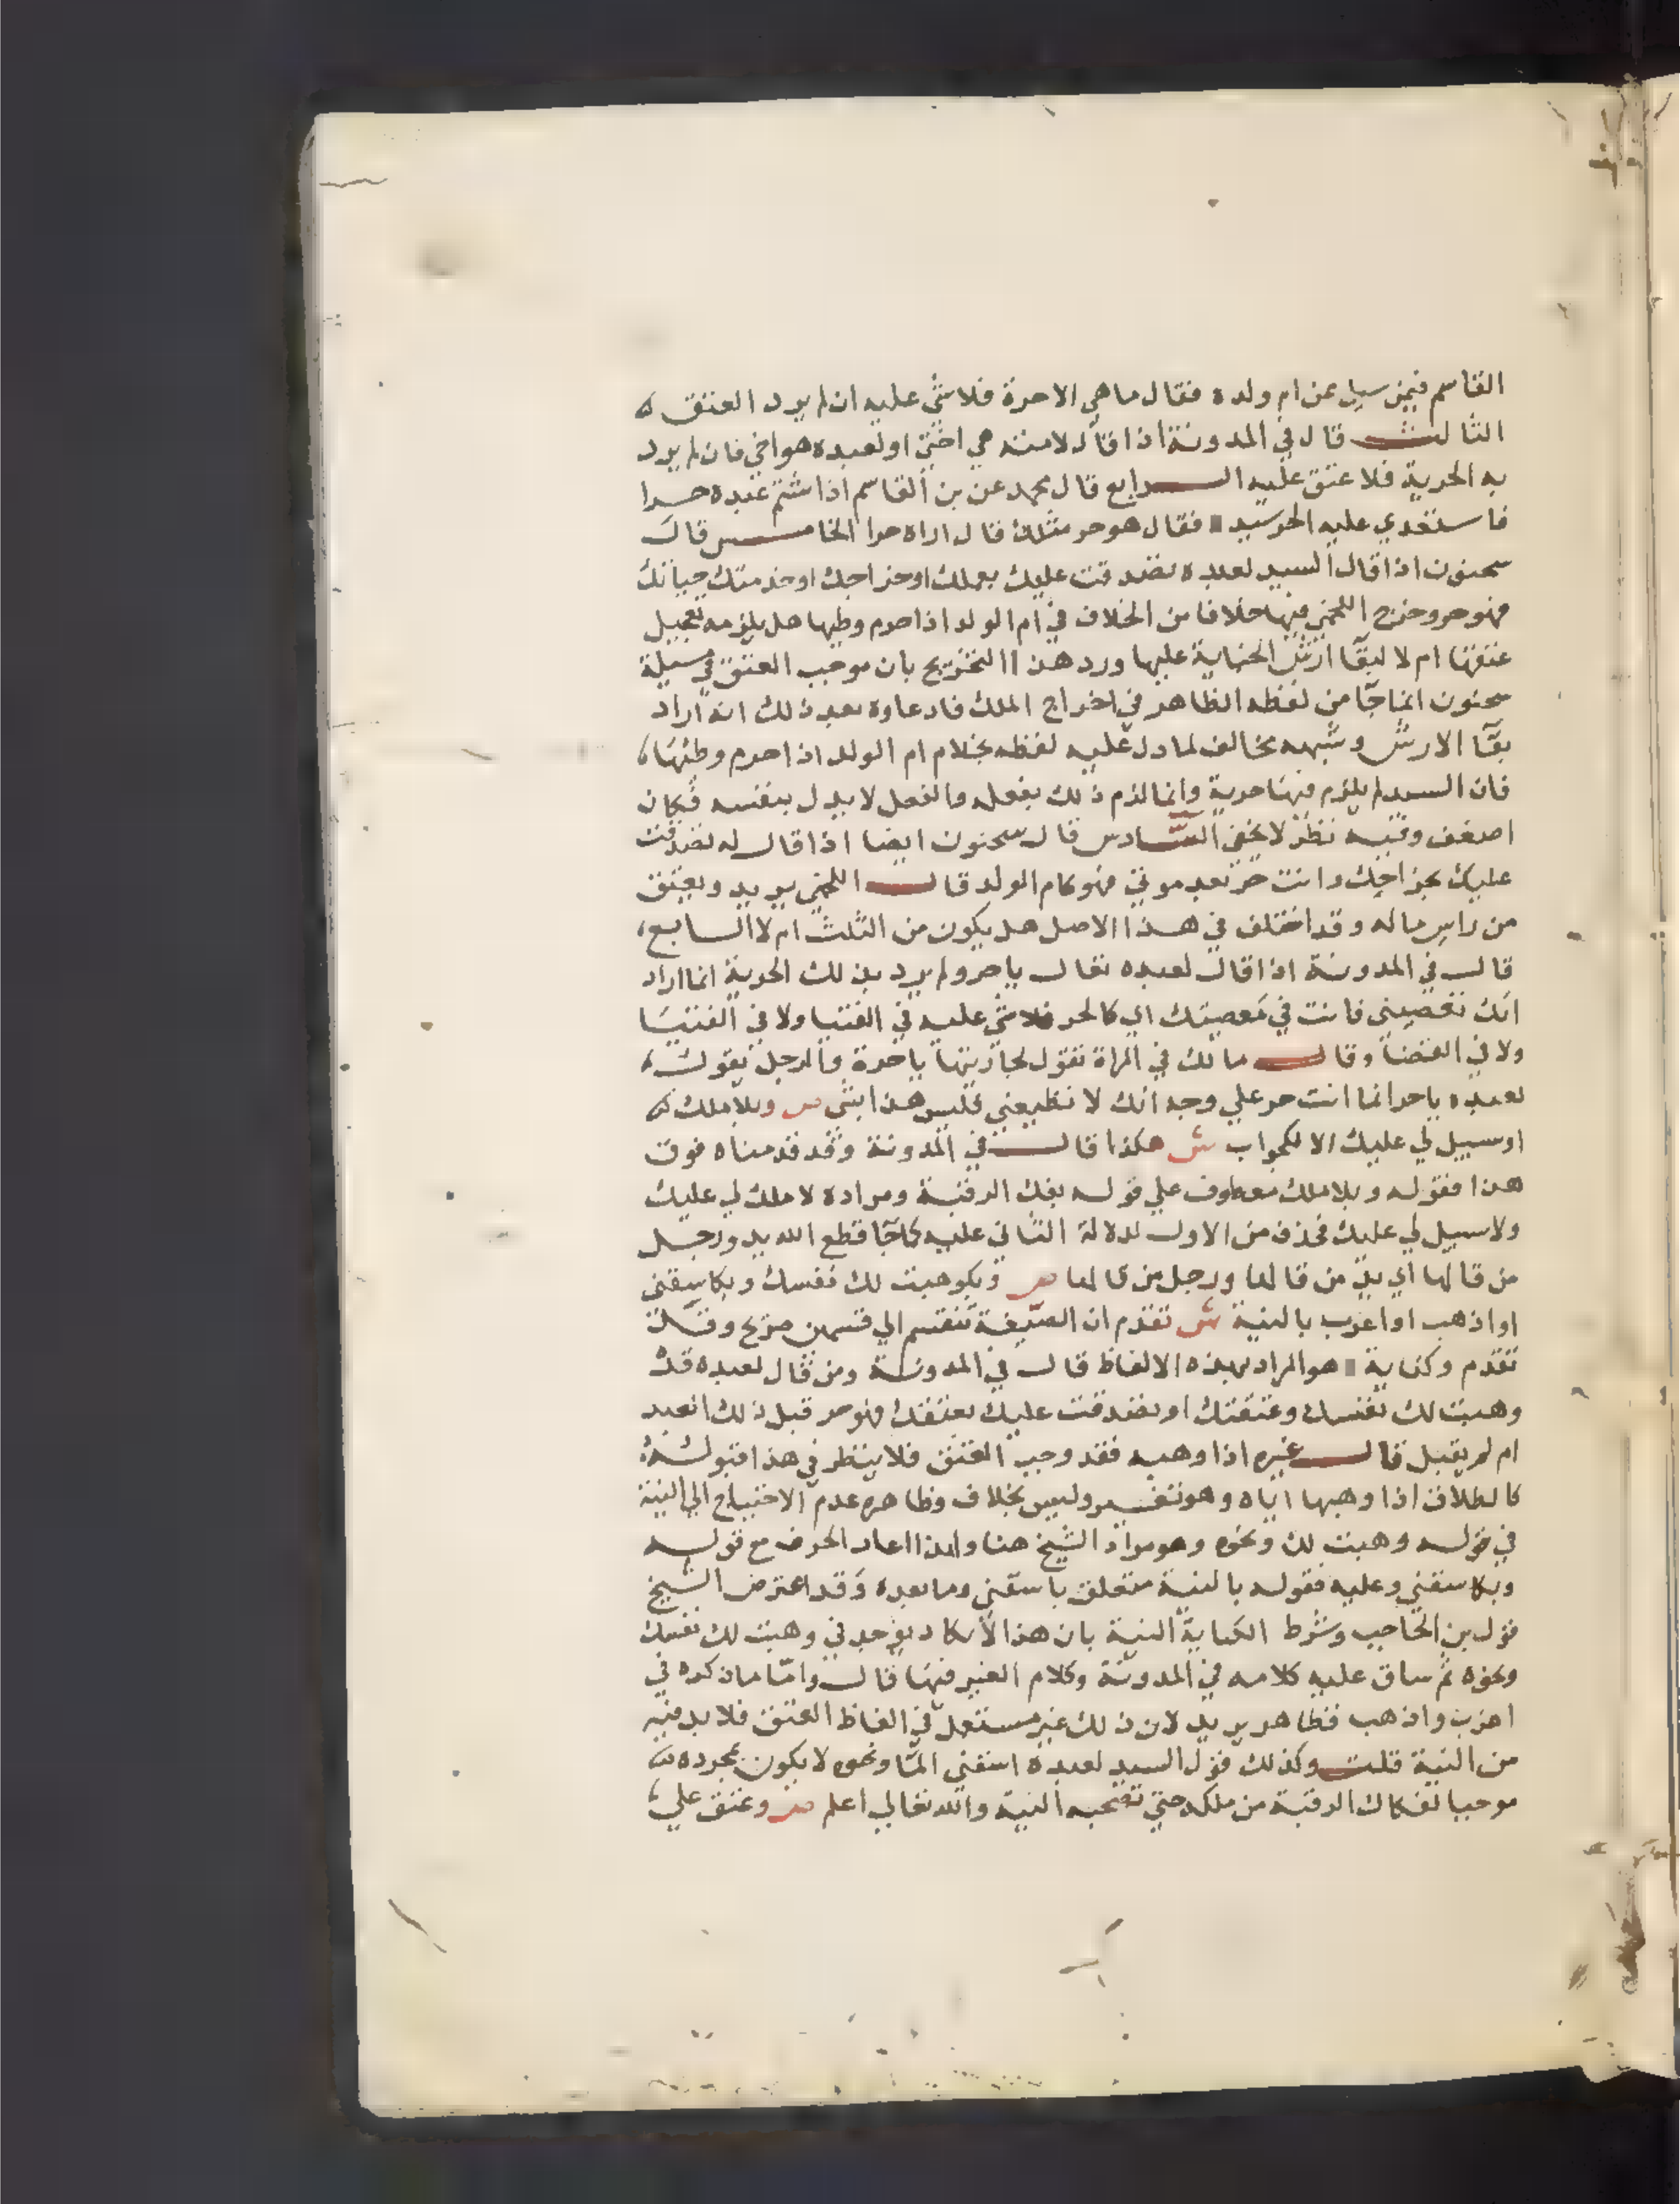 القاسم فيمن سيل عن ام ولده فقال ما هي الا حرة فلا شي عليه ان لم يرد العتق
الثالث قال في المدونة اذا قال لامته هي اختي او لعبده هو اخي فان لم يرد
به الحرية فلا عتق عليه الرابع قال محمد عن بن القاسم اذا شتم عبده حرا
فاستعدي عليه الحر سيد فقال هو حر مثلك قال اراه حرا الخامس قال
سحنون اذا قال السيد لعبده تصدقت عليك بعملك او خراجك او خدمتك حياتك
فهو حر وخرج اللخمي فيها خلافا من الخلاف في ام الولد اذا حرم وطيها هل يلزمه تعجيل
عتقها ام لا لبقا ارش الجناية عليها ورد هذا التخريج بان موجب العتق في مسيلة
سحنون انما جا من لفظه الظاهر في اخراج الملك فادعاوه بعد ذلك انه اراد
بقا الارش وشبهه مخالف لما دل عليه لفظه بخلاف ام الولد اذا حرم وطئها
فان السيد لم يلزم فيها حرية وانما لزم ذلك بفعله والفعل لا يدل بنفسه فكان
اضعف وفيه نظر لا يخفي السادس قال سحنون ايضا اذا قال له تصدقت
عليك بخراجك وانت حر بعد موتي فهو كام الولد قال اللخمي يريد ويعتق
من راس ماله وقد اختلف في هذا الاصل هل يكون من الثلث ام لا السابع
قال في المدونة اذا قال لعبده تعال يا حر ولم يرد بذلك الحرية انما اراد
انك تعصيني فانت في معصيتك اي كالحر فلا شي عليه في الفتيا ولا في الفتيا
ولا في القضا وقال مالك في المراة تقول لجاريتها يا حرة والرجل يقول
لعبده يا حر انما انت حر علي وجه انك لا تطيعني فليس هذا بشي ص وبلا ملك
او سبيل لي عليك الا لجواب ش هكذا قال في المدونة وقد قدمناه فوق
هذا فقوله وبلا ملك معطوف علي قوله بفك الرقبة ومراده لا ملك لي عليك
ولا سبيل لي عليك فحذف من الاول لدلالة الثاني عليه كما جا قطع الله يد ورجل
من قالها اي يد من قالها ورجل من قالها ص وبكوهبت لك نفسك وبكاسقني
او اذهب او اعزب بالنية ش تقدم ان الصيغة تنقسم الي قسمين صريح وقد
تقدم وكناية هو المراد بهذه الالفاظ قال في المدونة ومن قال لعبده قد
وهبت لك نفسك وعتقتك او تصدقت عليك بعتقك فهو حر قبل ذلك العبد
ام لم يقبل قال غيره اذا وهبه فقد وجب العتق فلا ينظر في هذا قبوله
كالطلاق اذا وهبها اياه وهو تفسير وليس بخلاف وظاهره عدم الاحتياج الي النية
في قوله وهبت لك ونحوه وهو مراد الشيخ هنا ولهذا اعاد الحرف مع قوله
وبكاسقني وعليه فقوله بالنية متعلق باسقني وما بعده وقد اعترض الشيخ
قول بن الحاجب وشرط الكناية النية بان هذا لا يكاد يوجد في وهبت لك نفسك
ونحوه ثم ساق عليه كلامه في المدونة وكلام الغير فيها قال واما ما ذكره في
اعزب واذهب فظاهر يريد لان ذلك غير مستعمل في الفاظ العتق فلا بد فيه
من النية قلت وكذلك قول السيد لعبده اسقني الما ونحوه لا يكون بمجرده
موجبا لفكاك الرقبة من ملكه حتي تصحبه النية والله تعالي اعلم ص وعتق علي